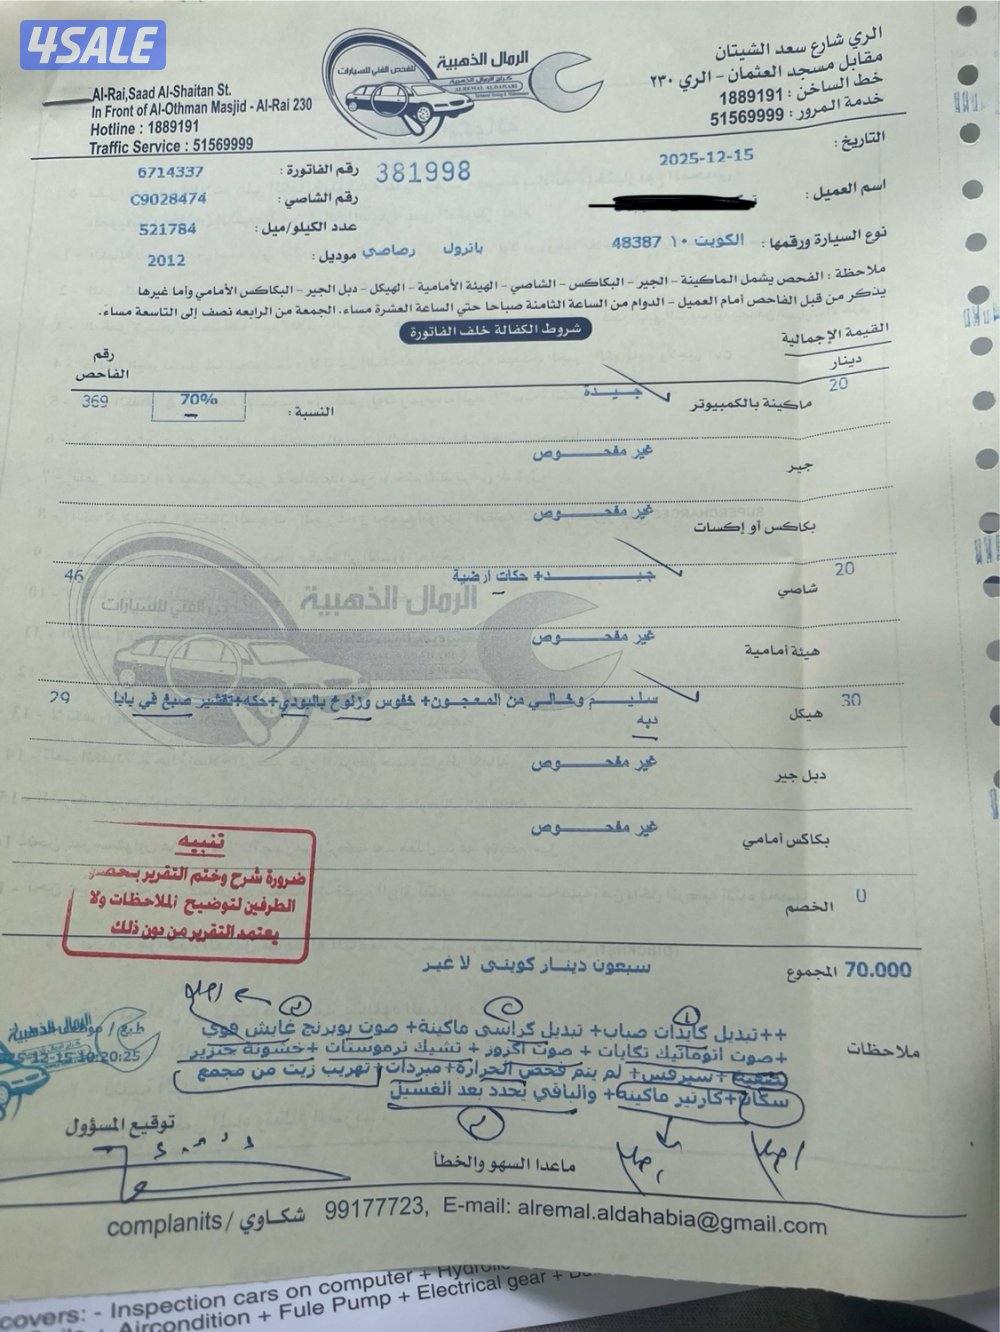 4SALE
Al-Rai,Saad Al-Shaitan St.
In Front of Al-Othman Masjid - Al-Rai 230
Hotline : 1889191
Traffic Service : 51569999
الرمال الذهبية
للفحص الفني للسيارات
كراج الرمال الذهبية
ALREMAL ALDAHABI
الري شارع سعد الشيتان
مقابل مسجد العثمان - الري ٢٣٠
خط الساخن : 1889191
خدمة المرور : 51569999
التاريخ : 2025-12-15
381998
رقم الفاتورة : 6714337
اسم العميل :
رقم الشاصي : C9028474
نوع السيارة ورقمها : الكويت ١٠ 48387 باترول رصاصي
عدد الكيلو/ميل : 521784
موديل : 2012
ملاحظة : الفحص يشمل الماكينة - الجير - البكاكس - الشاصي - الهيئة الأمامية - الهيكل - دبل الجير - البكاكس الأمامي وأما غيرها
يذكر من قبل الفاحص أمام العميل - الدوام من الساعة الثامنة صباحا حتي الساعة العشرة مساء، الجمعة من الرابعه نصف إلى التاسعة مساء.
شروط الكفالة خلف الفاتورة
القيمة الإجمالية
دينار
رقم الفاحص
20 ماكينة بالكمبيوتر جيدة النسبة : 70% 369
جير غير مفحوص
بكاكس أو إكسات غير مفحوص
20 شاصي جيد+ حكات ارضية 46
هيئة أمامية غير مفحوص
30 هيكل سليم وخالي من المعجون+ خفوس وزلوخ بالبودي+حكه+تقشير صبغ في بابا 29
دبه
دبل جير غير مفحوص
بكاكس أمامي غير مفحوص
الخصم 0
تنبيه
ضرورة شرح وختم التقرير بحضور
الطرفين لتوضيح الملاحظات ولا
يعتمد التقرير من دون ذلك
70.000 المجموع سبعون دينار كويتى لا غير
ملاحظات
++تبديل كايدات صباب+ تبديل كراسى ماكينة+ صوت بوبرنج غايش قوي
+صوت اتوماتيك تكايات + صوت اكزوز + تشيك ترموستات +خشونة جنزير
تصفية +سيرفس+ لم يتم فحص الحرارة+ مبردات+ تهريب زيت من مجمع
سكان +كارتير ماكينه+ والباقي يحدد بعد الغسيل
الرمال الذهبية
10:20:25
توقيع المسؤول
ماعدا السهو والخطأ
complanits / شكاوي 99177723, E-mail: alremal.aldahabia@gmail.com
covers: - Inspection cars on computer +
Aircondition + Fule Pump + Electrical gear +